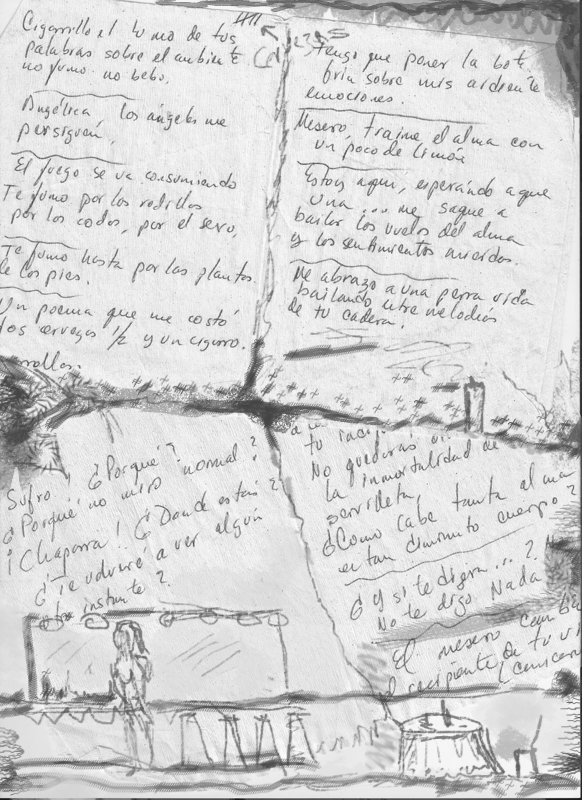 Cigarrillo el humo de tus
palabras sobre el ambiente
no fumo no bebo.
Angélica los ángeles me
persiguen.
El fuego se va consumiendo
Te fumo por las rodillas
por los codos, por el sexo,
Te fumo hasta por las plantas
de los pies.
Un poema que me costó
dos cervezas 1/2 y un cigarro.
tengo que poner la bota
fría sobre mis ardiente
emociones.
Mesero, traime el alma con
un poco de limón
Estoy aquí, esperando a que
una ... me saque a
bailar los vuelos del alma
y los sentimientos
Me abrazo a una perra vida
bailando entre melodías
de tu cadera.
Sufro! ¿Porqué?
¿Porqué no miro normal?
¡Chaparra! ¿Donde estás?
¿Te volvere a ver algún
instante?
tu
No quedaras
la inmortalidad de
servilleta,
¿Como cabe tanta alma
en tan diminuto cuerpo?
¿Y si te digera...?
No te digo Nada
El mesero
el recipiente de tu